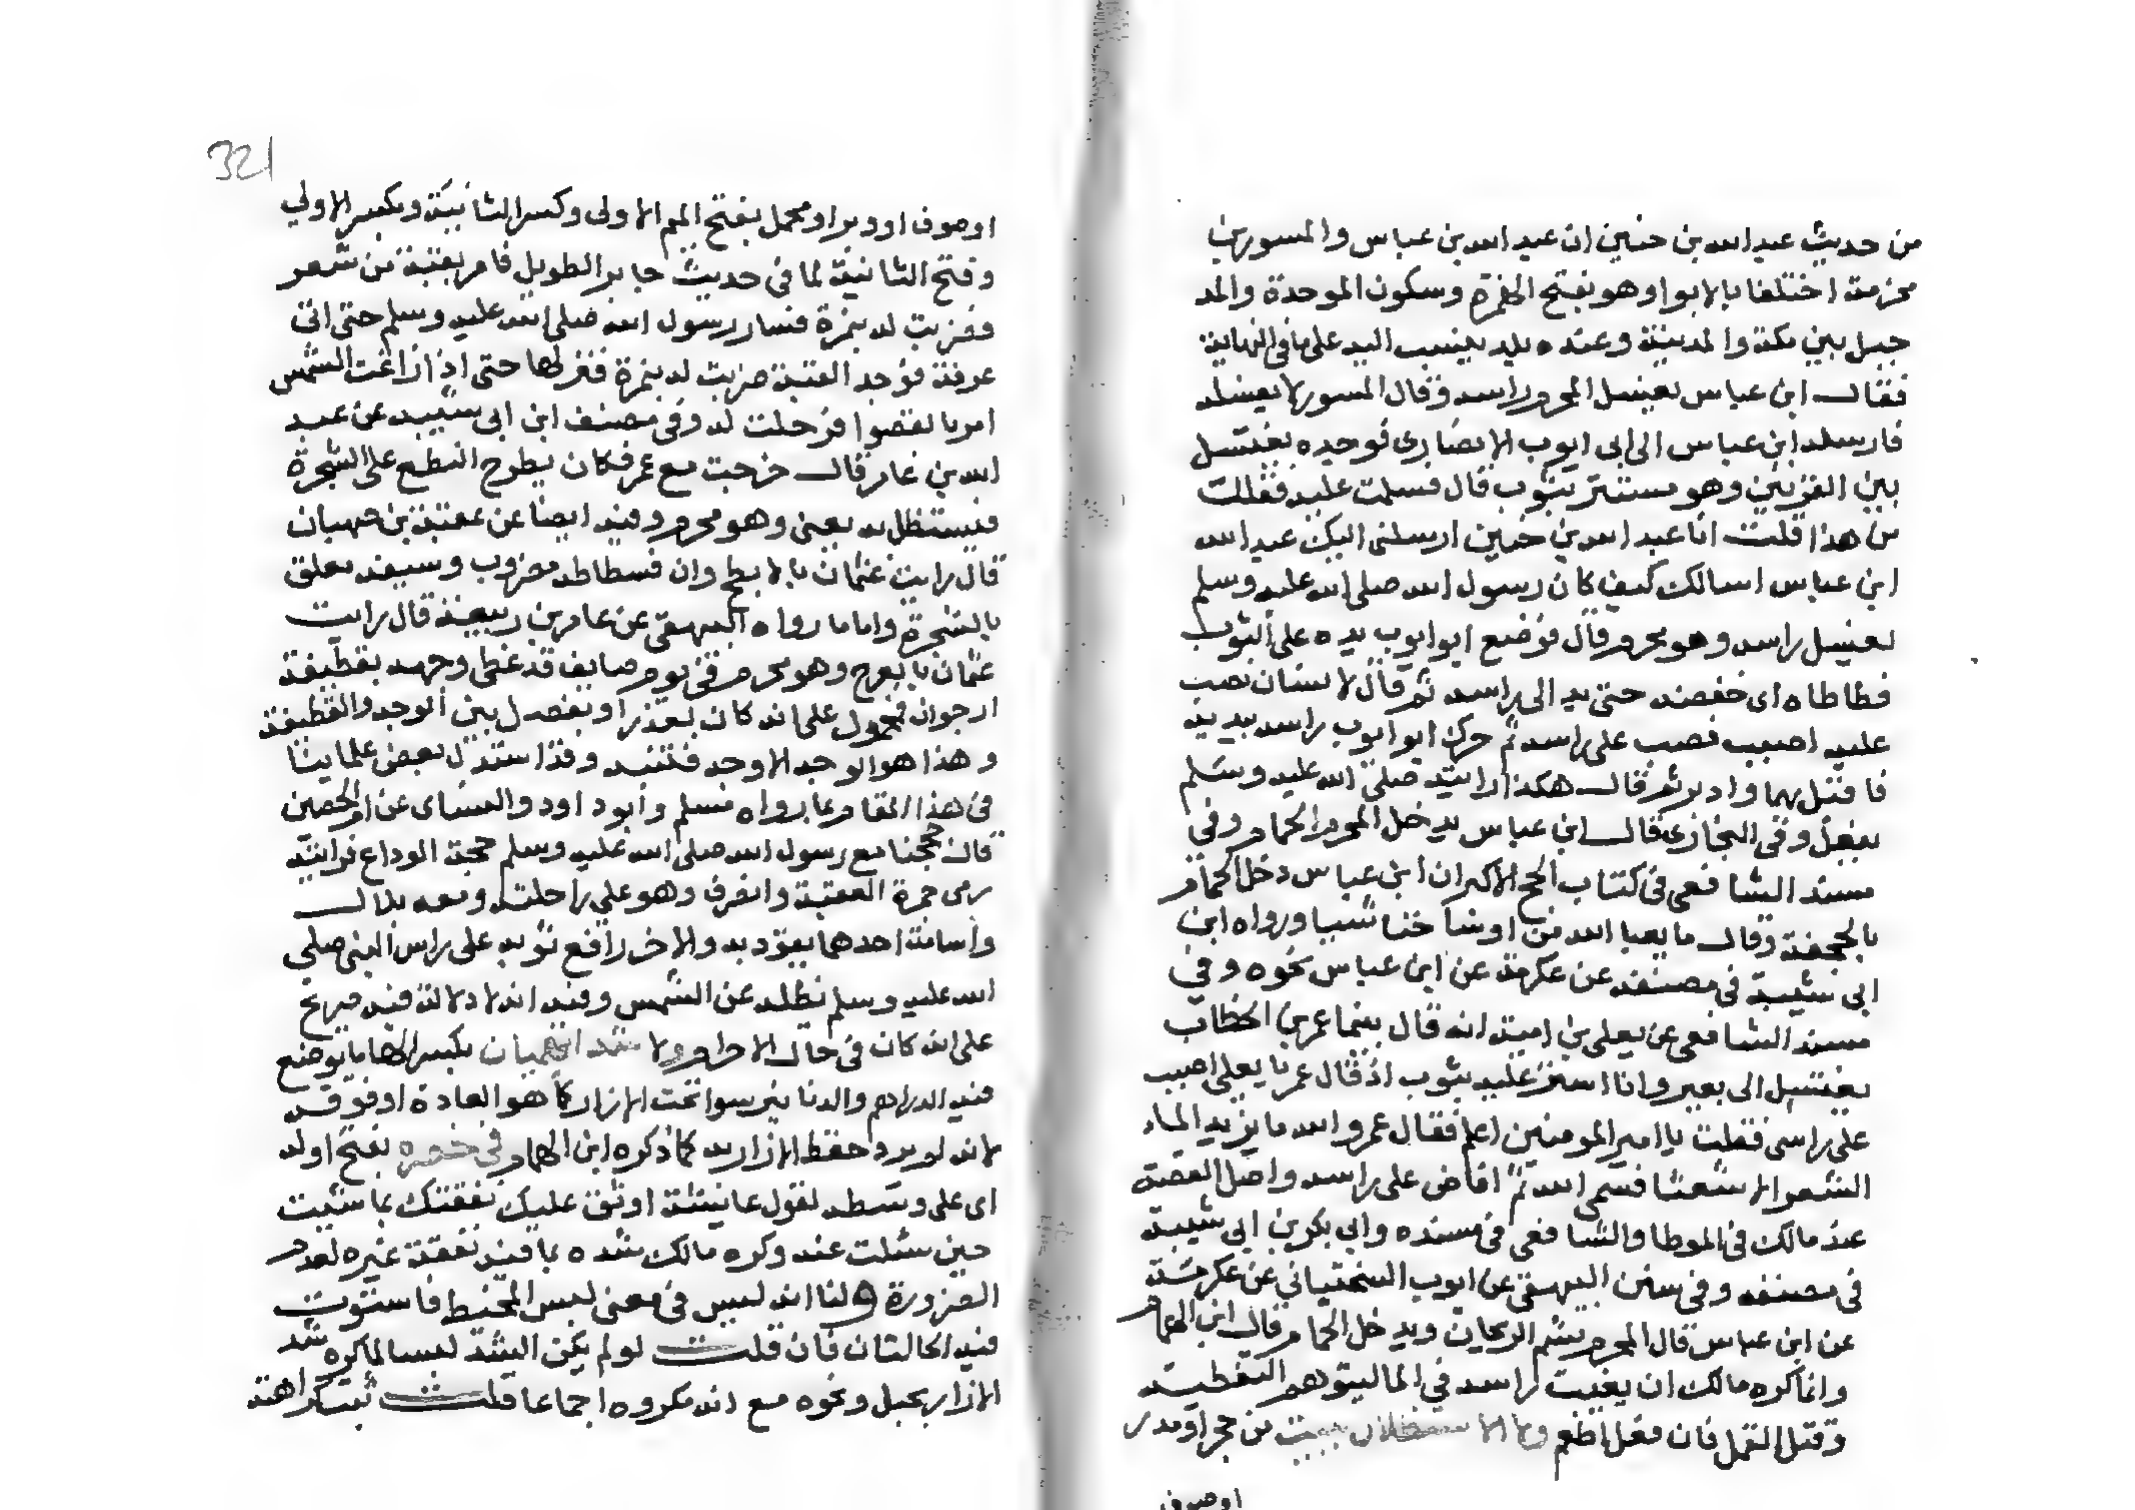 من حديث عبد الله بن حنين ان عبد الله بن عباس والمسور بن
مخرمة اختلفا بالابوا وهو بفتح الهمزة وسكون الموحدة والمد
جبل بين مكة والمدينة وعنده بلد ينسب اليه على ما في النهاية
فقال ابن عباس يغسل المحرم راسه وقال المسور لا يغسله
فارسله ابن عباس الى ابي ايوب الانصاري فوجده يغتسل
بين القرنين وهو مستتر بثوب قال فسلمت عليه فقلت
من هذا قلت انا عبد الله بن حنين ارسلني اليك عبد الله
ابن عباس اسالك كيف كان رسول الله صلى الله عليه وسلم
يغسل راسه وهو محرم قال فوضع ابو ايوب يده على الثوب
فطاطاه اي خفضه حتى بد الى راسه ثم قال لانسان يصب
عليه اصبب فصب على راسه ثم حرك ابو ايوب راسه بيديه
فاقبل بهما وادبر ثم قال هكذا رايته صلى الله عليه وسلم
يفعل وفي البخاري قال ابن عباس يدخل المحرم الحمام وفي
مسند الشافعي في كتاب الحج الاكبر ان ابن عباس دخل الحمام
بالجحفة وقال ما يعبا الله من اوساخنا شيا ورواه ابن
ابي شيبة في مصنفه عن عكرمة عن ابن عباس نحوه وفي
مسند الشافعي عن يعلى بن امية انه قال بينما عمر بن الخطاب
يغتسل الى بعير وانا استر عليه بثوب اذ قال عمر يا يعلى اصبب
على راسي فقلت يا امير المومنين اعلم فقال عمر والله ما يزيد الماء
الشعر الا شعثا فسمى الله ثم افاض على راسه واصل القصة
عند مالك في الموطا والشافعي في مسنده وابي بكر بن ابي شيبة
في مصنفه وفي سنن البيهقي عن ايوب السختياني عن عكرمة
عن ابن عباس قال المحرم يشم الريحان ويدخل الحمام قال ابن الهمام
وانما كره مالك ان يغيب راسه في الما ليتوهم التغطية
وقتل القمل فان فعل اطعم ولا الاستظلال ببيت من حجر او مدر
او صوف
321
او صوف او وبر او محمل بفتح الميم الاولى وكسر الثانية وبكسر الاولي
وفتح الثانية لما في حديث جابر الطويل فامر بقبة من شعر
فضربت له بنمرة فسار رسول الله صلى الله عليه وسلم حتى اتى
عرفة فوجد القبة ضربت له بنمرة فنزلها حتى اذا زاغت الشمس
امر بالقصوا فرحلت له وفي مصنف ابن ابي شيبة عن عبد
الله بن عامر قال خرجت مع عمر فكان يطرح النطع على الشجرة
فيستظل به يعني وهو محرم وفيه ايضا عن عقبة بن صهبان
قال رايت عثمان بالابطح وان فسطاطه مضروب وسيفه معلق
بالشجرة واما ما رواه البيهقي عن عامر بن ربيعة قال رايت
عثمان بالعرج وهو محرم في يوم صايف قد غطى وجهه بقطيفة
ارجوان فمحمول على انه كان لعذر او بفصل بين الوجه والقطيفة
وهذا هو الوجه الاوجه فتنبه وقد استدل بعض علماينا
في هذا المقام بما رواه مسلم وابو داود والنساي عن ام الحصين
قالت حججنا مع رسول الله صلى الله عليه وسلم حجة الوداع فرايته
رمى جمرة العقبة وانصرف وهو على راحلته ومعه بلال
واسامة احدهما يقود به والاخر رافع ثوبه على راس النبي صلى
الله عليه وسلم يظله عن الشمس وفيه انه لا دلالة فيه صريح
على انه كان في حال الاحرام ولا شد الهميان بكسر الها ما يوضع
فيه الدراهم والدنانير سوا تحت الازار كما هو العادة او فوقه
لانه لم يرد حفظ الازار به كما ذكره ابن الهمام في خصره بفتح اوله
اي على وسطه لقول عائشة اوثق عليك نفقتك بما شيت
حين سئلت عنه وكره مالك شده بما فيه نفقة غيره لعدم
الضرورة ولنا انه ليس في معنى لبس المخيط فاستوت
فيه الحالتان فان قلت لو لم يكن الشد لبسا لما كره شد
الازار بحبل ونحوه مع انه مكروه اجماعا قلت ثبت كراهته